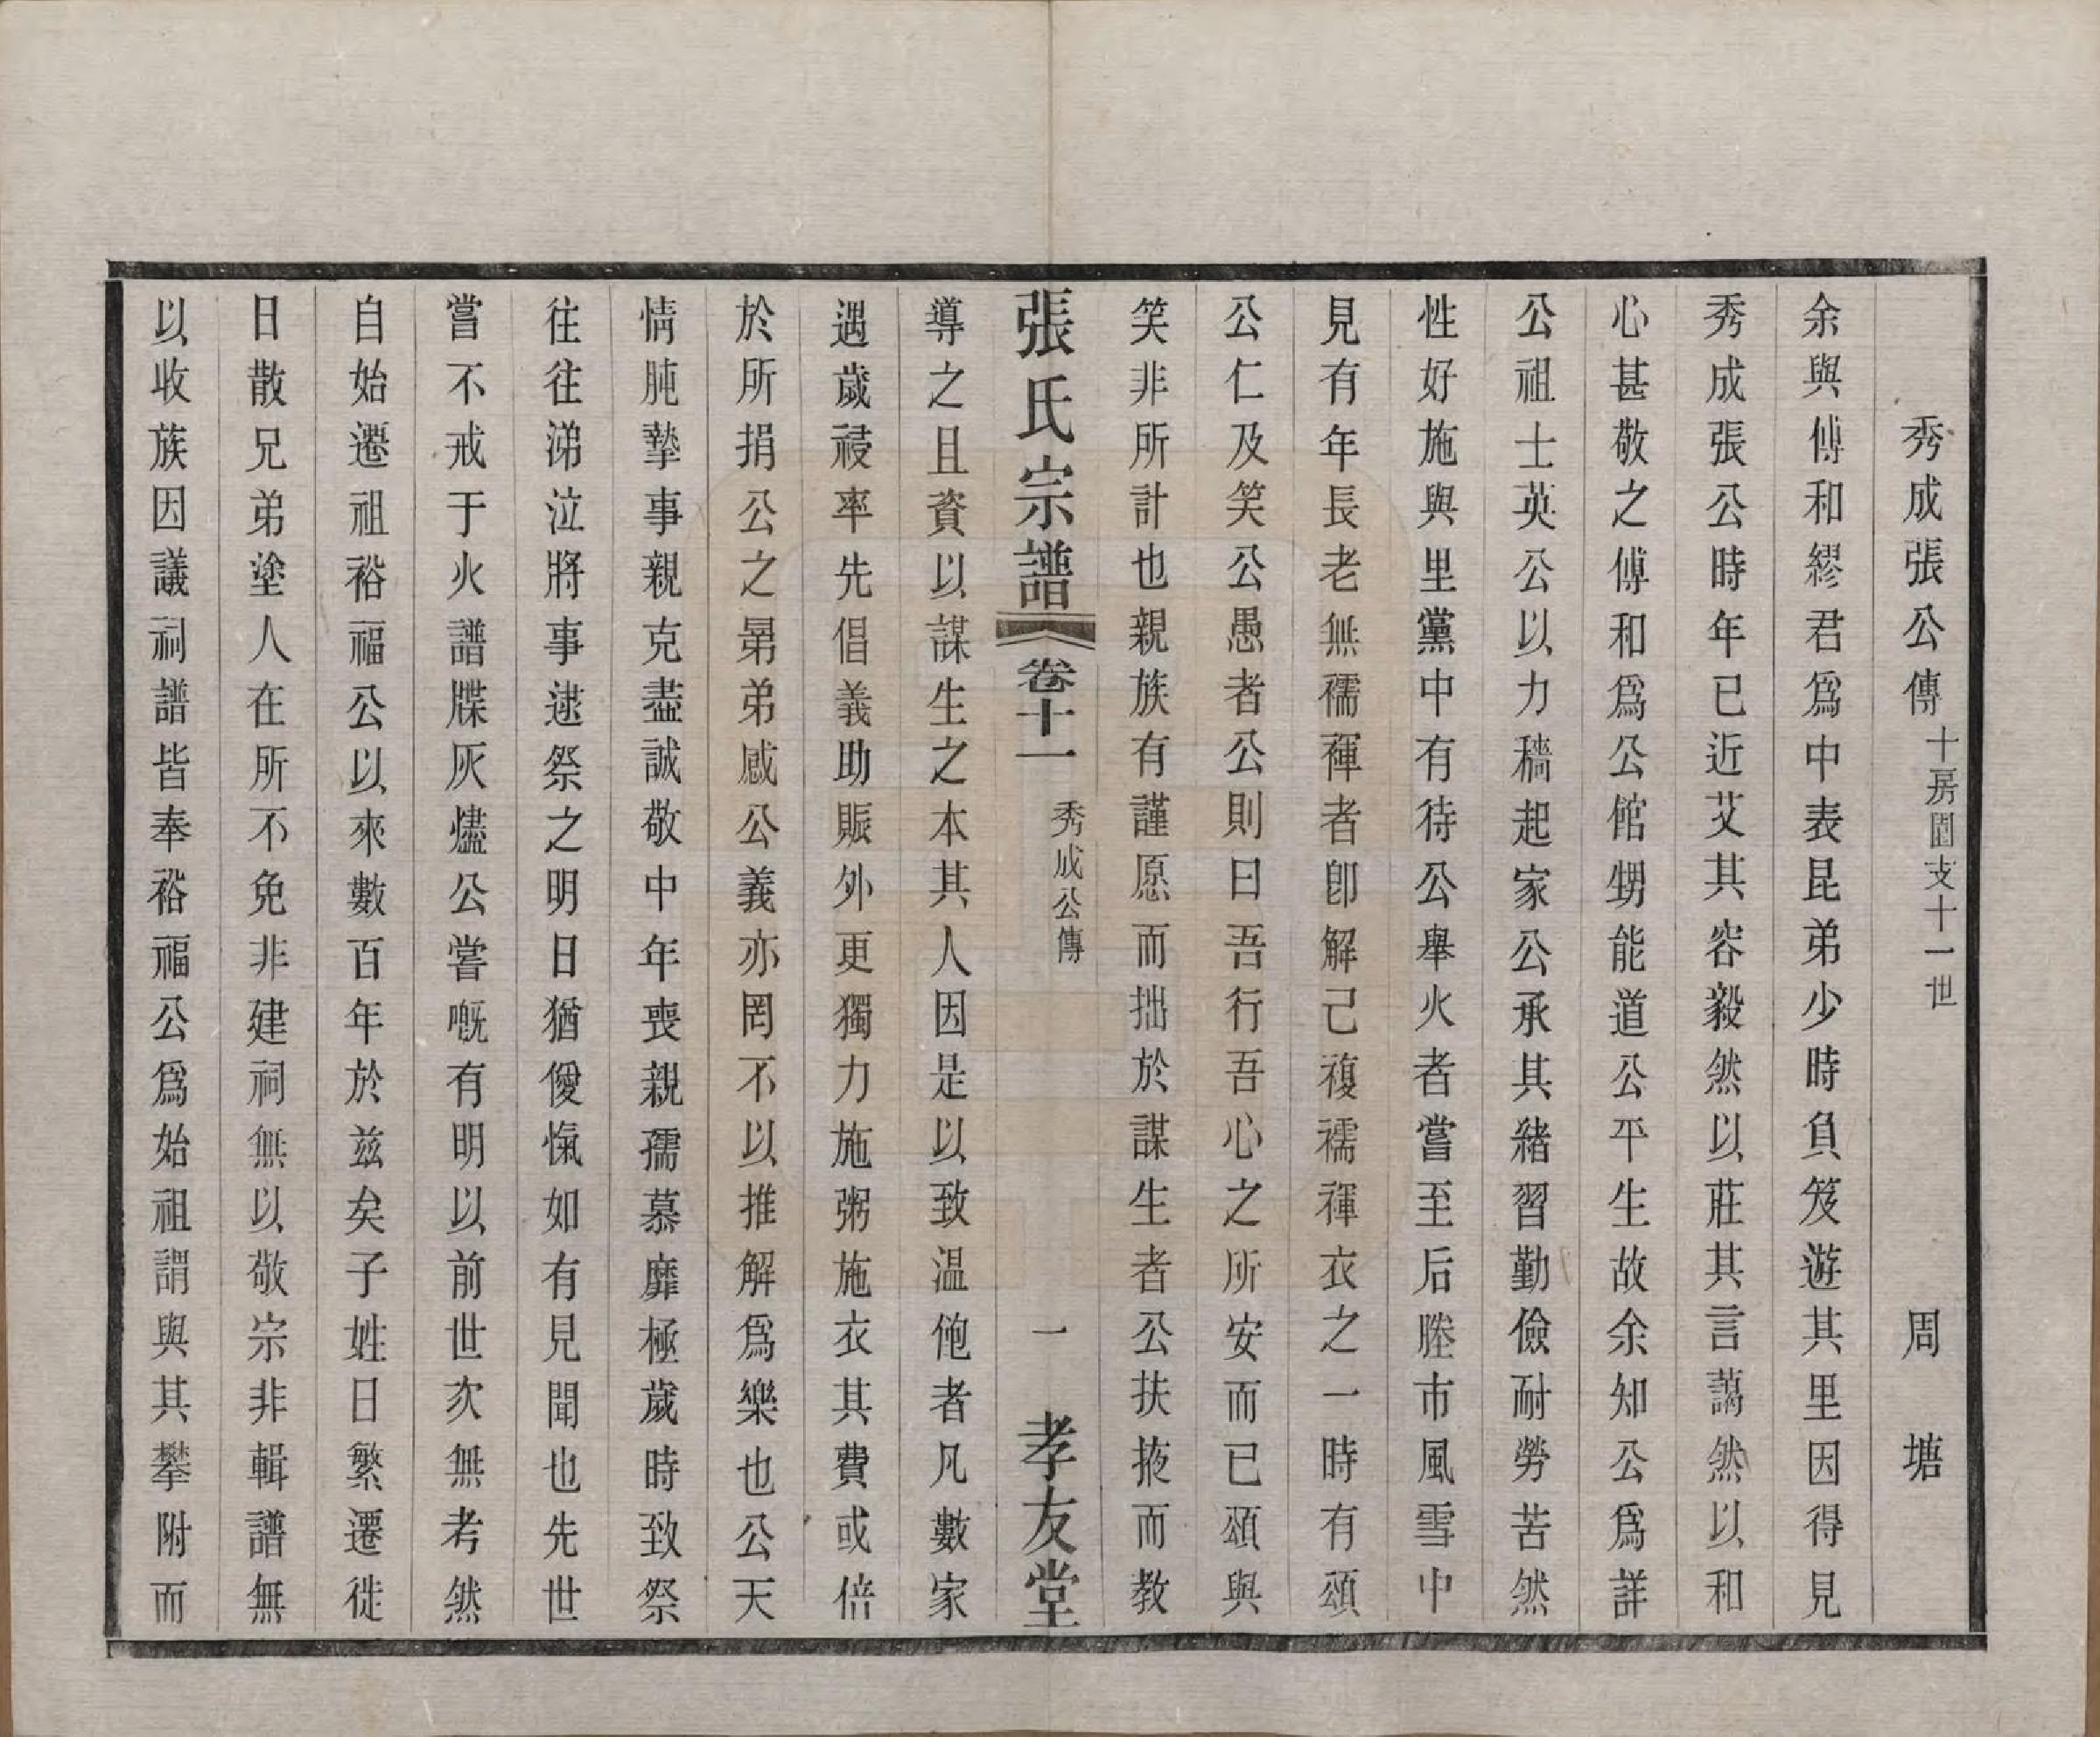 秀成張公傳 十房園支十一世 周塘
余與傅和繆君爲中表昆弟少時負笈遊其里因得見
秀成張公時年已近艾其容毅然以莊其言藹然以和
心甚敬之傅和爲公館甥能道公平生故余知公爲詳
公祖士英公以力穡起家公承其緒習勤儉耐勞苦然
性好施與里黨中有待公舉火者嘗至后塍市風雪中
見有年長老無襦褌者卽解己複襦褌衣之一時有頌
公仁及笑公愚者公則曰吾行吾心之所安而已頌與
笑非所計也親族有謹愿而拙於謀生者公扶掖而教
張氏宗譜 卷十一 秀成公傳 一 孝友堂
導之且資以謀生之本其人因是以致温飽者凡數家
遇歲祲率先倡義助賑外更獨力施粥施衣其費或倍
於所捐公之晜弟感公義亦罔不以推解爲樂也公天
情肫摯事親克盡誠敬中年喪親孺慕靡極歲時致祭
往往涕泣將事逮祭之明日猶僾愾如有見聞也先世
嘗不戒于火譜牒灰燼公嘗嘅有明以前世次無考然
自始遷祖裕福公以來數百年於茲矣子姓日繁遷徙
日散兄弟塗人在所不免非建祠無以敬宗非輯譜無
以收族因議祠譜皆奉裕福公爲始祖謂與其攀附而